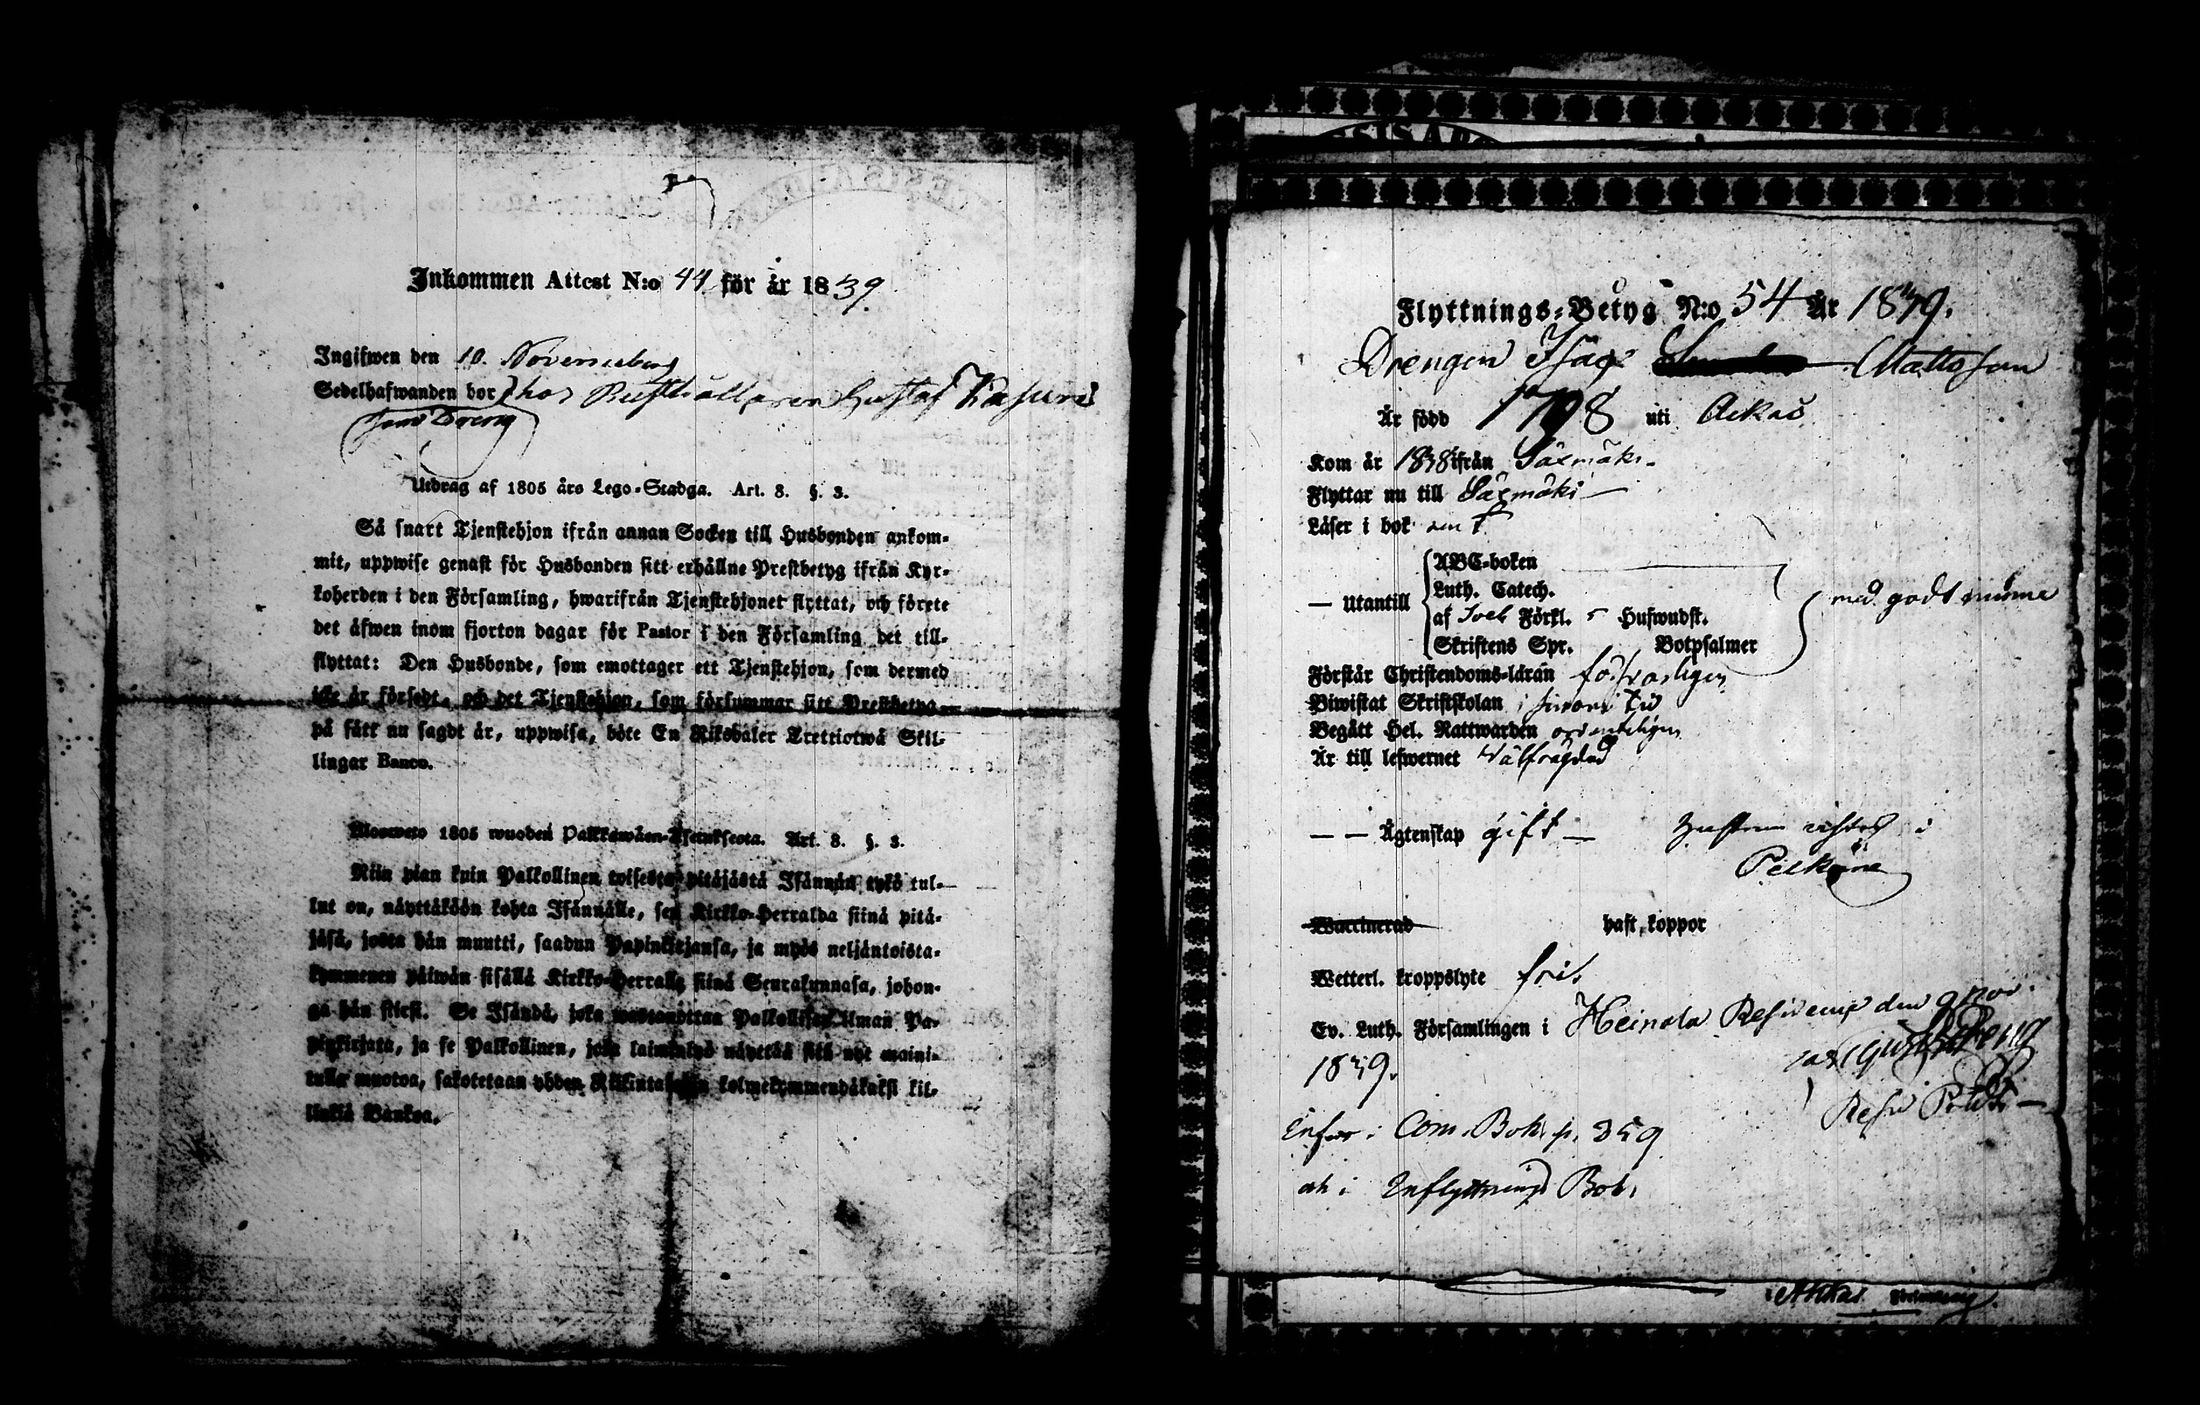 Inkommen Attest N:o 44 för år 1839.
Ingifwen den 10. November
Sedelhafwanden bor hos Rusthållaren Gustaf
som Dreng
Utdrag af 1805 års Lego-Stadga. Art. 8. §. 3.
Så snart Tjenstehjon ifrån annan Socken till Husbonden ankom-
mit, uppwise genast för Husbonden sitt erhållne Prestbetyg ifrån Kyr-
koherden i den Församling, hwarifrån Tjenstehjonet flyttat, och förete
det äfwen inom fjorton dagar för Pastor i den Församling det till-
flyttat: Den Husbonde, som emottager ett Tjenstehjon, som dermed
icke är försedt, och det Tjenstehjon, som försummar sitt Prestbetyg
på sätt nu sagdt är, uppwisa, böte En Riksdaler Tretriotwå Skil-
lingar Banco.
1805 wuoden Palkkawäen-Asetuksesta. Art. 8. §. 3.
Niin pian kuin Palkollinen toisesta pitäjästä Isännän tykö tul-
lut on, näyttäköön kohta Isännälle, sen Kirkko-Herralda siinä pitä-
jäsä, josta hän muutti, saadun Papinkirjansa, ja myös neljäntoista-
kymmenen päiwän sisällä Kirkko-Herralle siinä Seurakunnasa, johon-
ga hän siirsi. Se Isändä, joka wastaanottaa Palkollisen ilman Pa-
pinkirjata, ja se Palkollinen, joka laiminlyö näyttää sitä nyt maini-
tulla muotoa, sakotetaan yhden Riikintalarin kolmekymmendäkaksi kil-
lingiä Bankoa.
Flyttnings-Betyg N:o 54 År 1839.
Drengen Isac Mattsson
Är född 1798 uti Ackas
Kom år 1838 ifrån Säxmäki
Flyttar nu till Säxmäki
Läser i bok
ABC-boken
Luth. Catech.
— Utantill af Förkl. 5 Hufwudst. med godt minne
Skriftens Spr. Botpsalmer
Förstår Christendoms-läran försvarligen
Biwistat Skriftskolan i sinom tid
Begått Hel. Nattwarden ordentligen
Är till lefwernet wälfrägdad
— — Ägtenskap gift — Hustrun vistas i
Pelkäne
Waccinerad haft koppor
Wetterl. kroppslyte fri
Ev. Luth. Församlingen i Heinola den 9 nov.
1839.
Införd i Com. Bok. p. 359
och i Inflyttnings Bok.